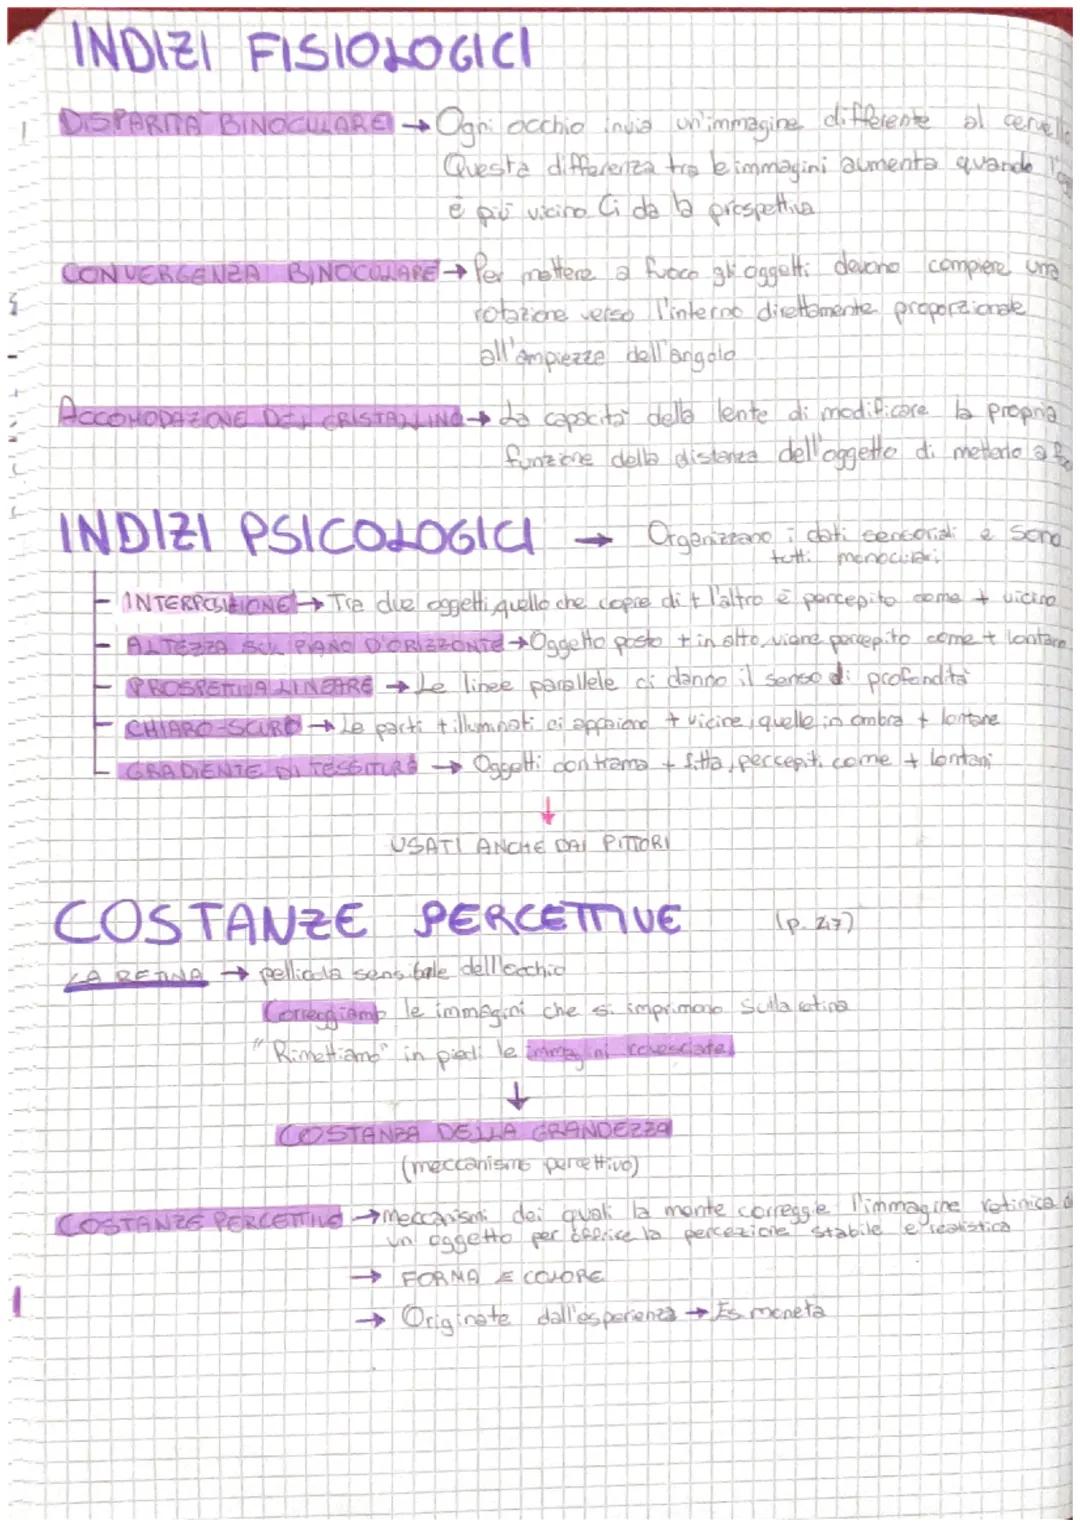 INDIZI FISIOLOGICI
DISPARITÀ BINOCULARE → Ogni occhio invia un'immagine differente al
Questa differenza tra le immagini aumenta quando
è più vicino Ci da la prospettiva
CONVERGENZA BINOCULARE → Per mettere a fuoco gli oggetti devono compiere una
rotazione verso l'interno direttamente proporzionale
all'ampiezza dell'angolo
ACCOMODAZIONE DEL CRISTALLINO → La capacità della lente di modificare la propria
funzione della distanza dell'oggetto di metterlo a
INDIZI PSICOLOGICI → Organizzano i dati sensoriali e sono
tutti monoculari
INTERPOSIZIONE → Tra due oggetti, quello che copre di + l'altro è percepito come + vicino
ALTEZZA SUL PIANO D'ORIZZONTE → Oggetto posto + in alto, viene percepito come + lontano
PROSPETTIVA LINEARE → Le linee parallele ci danno il senso di profondità
CHIARO-SCURO → Le parti + illuminati ci appaiono + vicine, quelle in ombra + lontane
GRADIENTE DI TESSITURA → Oggetti con trama + fitta, percepiti come + lontani
↓
USATI ANCHE DAI PITTORI
COSTANZE PERCETTIVE (p. 247)
LA RETINA → pellicola sensibile dell'occhio
Correggiamo le immagini che si imprimono sulla retina
"Rimettiamo" in piedi le immagini rovesciate
↓
COSTANZA DELLA GRANDEZZA
(meccanismo percettivo)
COSTANZE PERCETTIVE → meccanismi dei quali la mente corregge l'immagine retinica
un oggetto per offrire la percezione stabile e realistica
→ FORMA E COLORE
→ Originate dall'esperienza → Es moneta